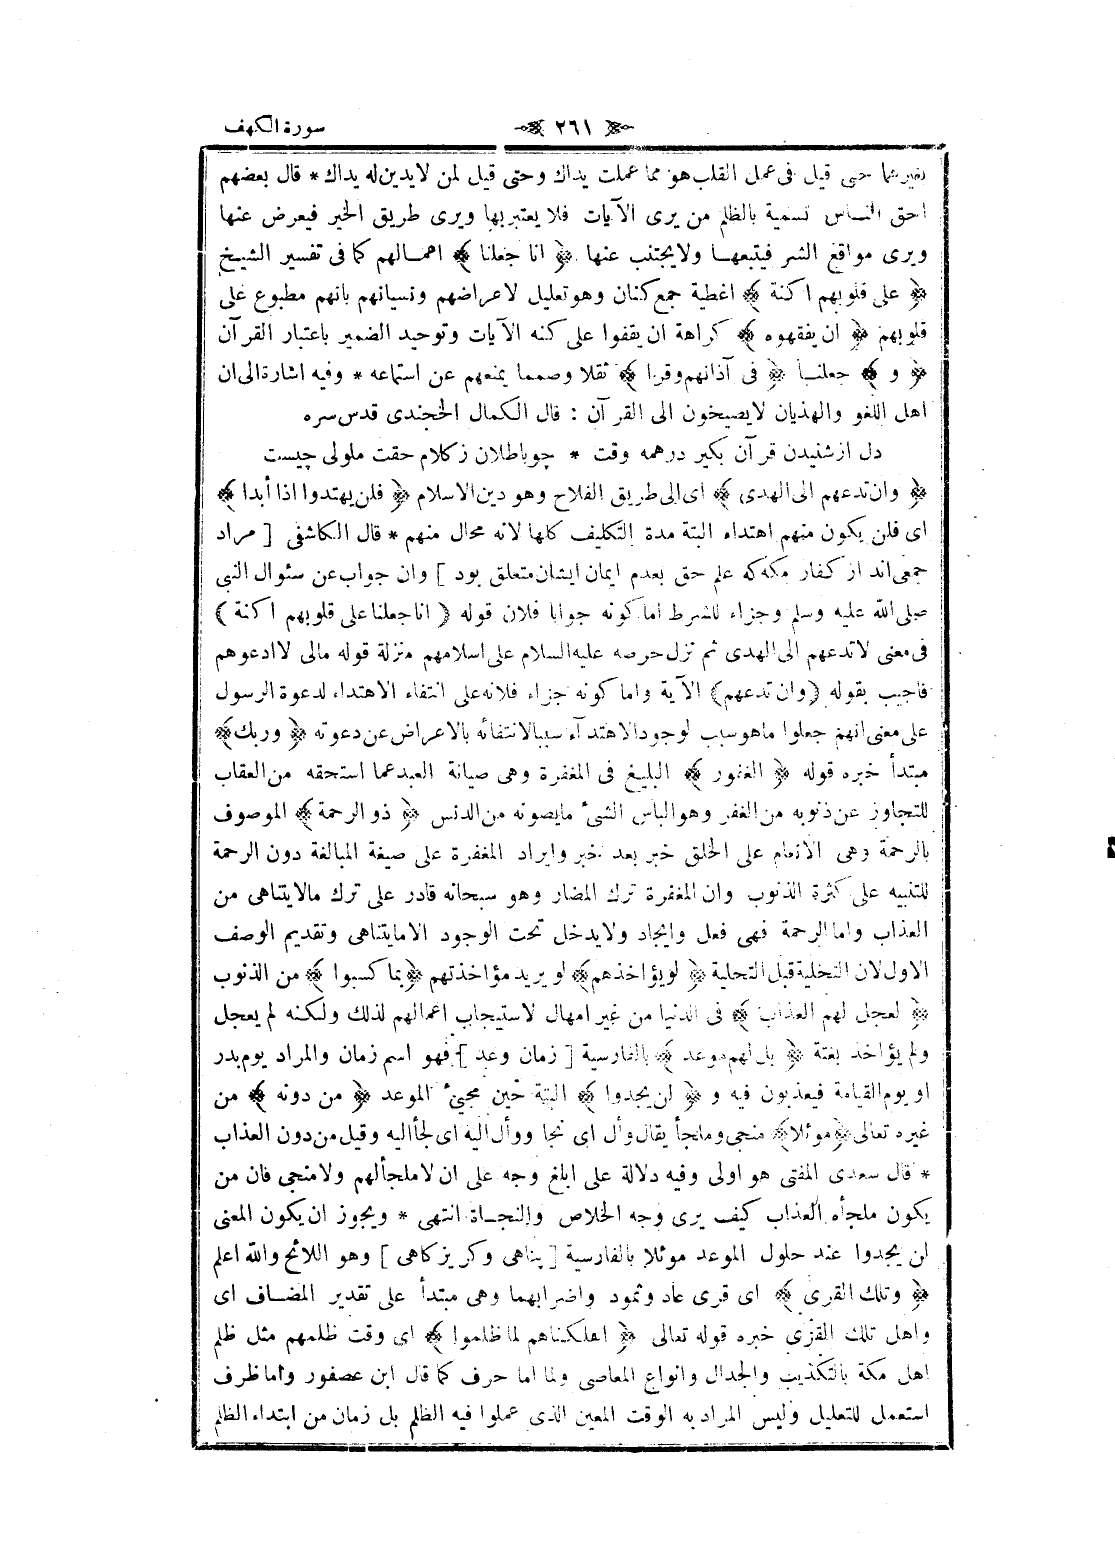 سورة الكهف
﴿ ٢٦١ ﴾
بغيرهما حتى قيل فى عمل القلب هو مما عملت يداك وحتى قيل لمن لايدين له يداك * قال بعضهم
احق النـاس تسمية بالظلم من يرى الآيات فلا يعتبر بها ويرى طريق الخير فيعرض عنها
ويرى مواقع الشر فيتبعهـا ولايجتنب عنها ﴿ انا جعلنا ﴾ اهمـالهم كما فى تفسير الشيخ
﴿ على قلوبهم اكنة ﴾ اغطية جمع كنان وهو تعليل لاعراضهم ونسيانهم بانهم مطبوع على
قلوبهم ﴿ ان يفقهوه ﴾ كراهة ان يقفوا على كنه الآيات وتوحيد الضمير باعتبار القرآن
﴿ و ﴾ جعلنـا ﴿ فى آذانهم وقرا ﴾ ثقلا وصمما يمنعهم عن استماعه * وفيه اشارة الى ان
اهل اللغو والهذيان لايصيخون الى القرآن : قال الكمال الخجندى قدس سره
دل از شنيدن قرآن بكير درهمه وقت * چوباطلان ز كلام حقت ملولى چيست
﴿ وان تدعهم الى الهدى ﴾ اى الى طريق الفلاح وهو دين الاسلام ﴿ فلن يهتدوا اذا أبدا ﴾
اى فلن يكون منهم اهتداء البتة مدة التكليف كلها لانه محال منهم * قال الكاشفى [ مراد
جمعى اند از كفار مكه كه علم حق بعدم ايمان ايشان متعلق بود ] وان جواب عن سئوال النبى
صلى الله عليه وسلم وجزاء للشرط اما كونه جوابا فلان قوله ( انا جعلنا على قلوبهم اكنة )
فى معنى لاتدعهم الى الهدى ثم نزل حرصه عليه السلام على اسلامهم منزلة قوله مالى لاادعوهم
فاجيب بقوله ( وان تدعهم ) الآية واما كونه جزاء فلانه على انتفاء الاهتداء لدعوة الرسول
على معنى انهم جعلوا ماهو سبب لوجود الاهتدآء سببا لانتفائه بالاعراض عن دعوته ﴿ وربك ﴾
مبتدأ خبره قوله ﴿ الغفور ﴾ البليغ فى المغفرة وهى صيانة العبد عما استحقه من العقاب
للتجاوز عن ذنوبه من الغفر وهو الباس الشئ مايصونه من الدنس ﴿ ذو الرحمة ﴾ الموصوف
بالرحمة وهى الانعام على الخلق خبر بعد خبر وايراد المغفرة على صيغة المبالغة دون الرحمة
للتنبيه على كثرة الذنوب وان المغفرة ترك المضار وهو سبحانه قادر على ترك مالايتناهى من
العذاب واما الرحمة فهى فعل وايجاد ولايدخل تحت الوجود الا مايتناهى وتقديم الوصف
الاول لان التخلية قبل التحلية ﴿ لو يؤاخذهم ﴾ لو يريد مؤاخذتهم ﴿ بما كسبوا ﴾ من الذنوب
﴿ لعجل لهم العذاب ﴾ فى الدنيا من غير امهال لاستيجاب اعمالهم لذلك ولكنه لم يعجل
ولم يؤاخذ بغتة ﴿ بل لهم موعد ﴾ بالفارسية [ زمان وعد ] فهو اسم زمان والمراد يوم بدر
او يوم القيامة فيعذبون فيه و ﴿ لن يجدوا ﴾ البتة حين مجيئ الموعد ﴿ من دونه ﴾ من
غيره تعالى ﴿ موئلا ﴾ منجى وملجأ يقال وأل اى نجا ووأل اليه اى لجأ اليه وقيل من دون العذاب
* قال سعدى المفتى هو اولى وفيه دلالة على ابلغ وجه على ان لاملجأ لهم ولامنجى فان من
يكون ملجأه العذاب كيف يرى وجه الخلاص والنجـاة انتهى * ويجوز ان يكون المعنى
لن يجدوا عند حلول الموعد موئلا بالفارسية [ پناهى وكريزكاهى ] وهو اللائح والله اعلم
﴿ وتلك القرى ﴾ اى قرى عاد وثمود واضرابهما وهى مبتدأ على تقدير المضـاف اى
واهل تلك القرى خبره قوله تعالى ﴿ اهلكناهم لما ظلموا ﴾ اى وقت ظلمهم مثل ظلم
اهل مكة بالتكذيب والجدال وانواع المعاصى ولما اما حرف كما قال ابن عصفور واما ظرف
استعمل للتعليل وليس المراد به الوقت المعين الذى عملوا فيه الظلم بل زمان من ابتداء الظلم